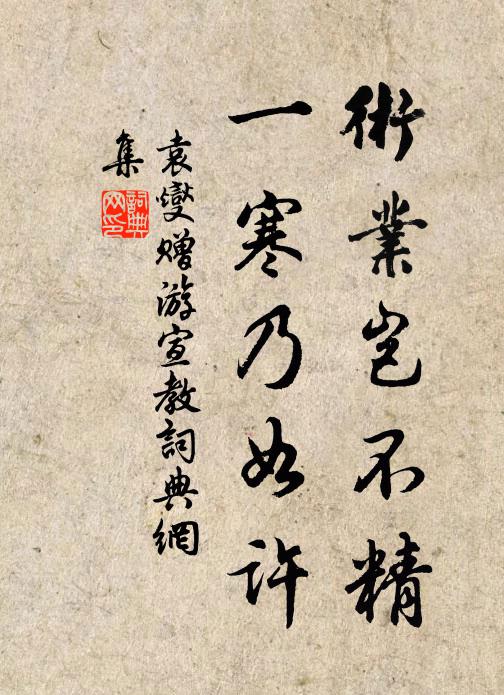 術業岂不精
一寒乃如許
袁燮贈游宣教詞典網
集
詞典
网印